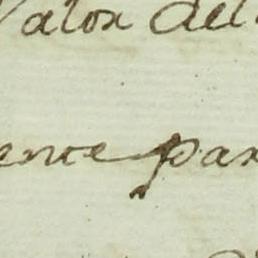 Valor del
ente par